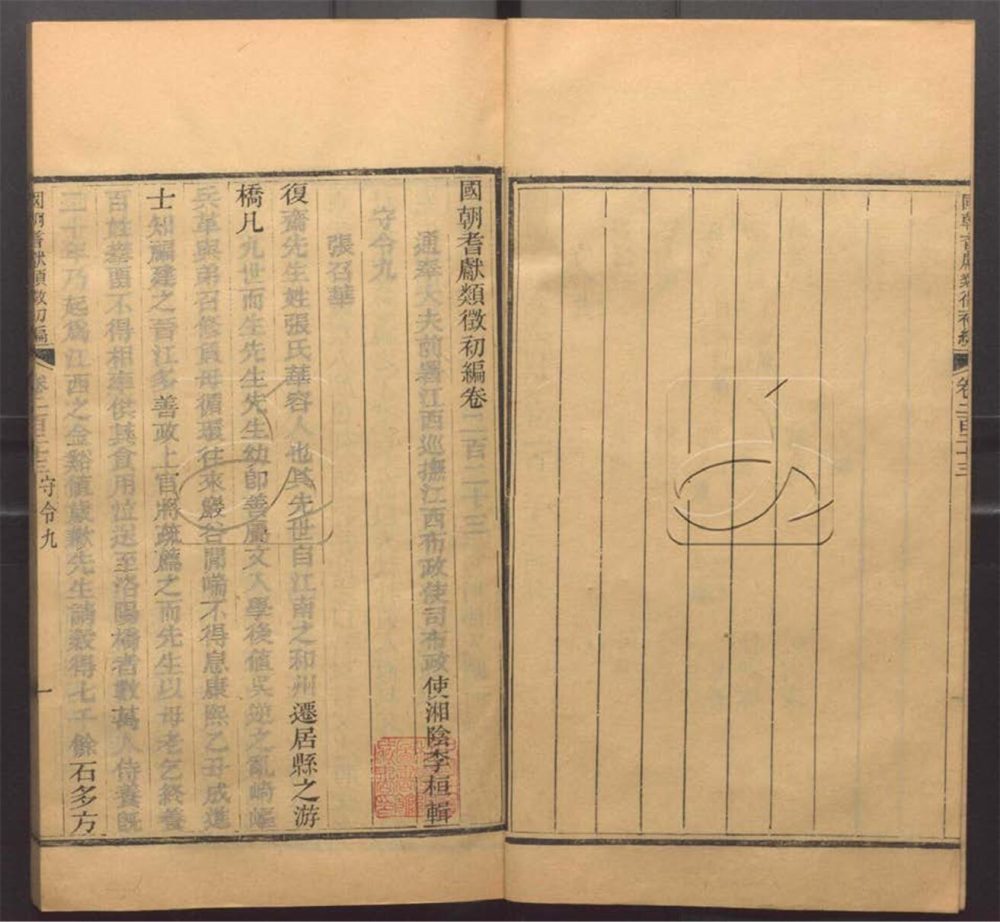 國朝耆獻類徵初編
卷二百二十三
國朝耆獻類徵初編卷二百二十三
通奉大夫前署江西巡撫江西布政使司布政使湘陰李桓輯
守令九
張召華
復齋先生姓張氏華容人也其先世自江南之和州遷居縣之游
橋凡九世而生先生先生幼即善屬文入學後值吳逆之亂崎嶇
兵革與弟召修負母循環往來巖谷間喘不得息康熙乙丑成進
士知福建之晉江多善政上官將疏薦之而先生以母老乞終養
百姓攀留不得相率供其食用泣送至洛陽橋者數萬人侍養既
二十年乃起爲江西之金谿值歲歉先生請穀得七千餘石多方
國朝耆獻類徵初編
卷二百二十三
守令九
一